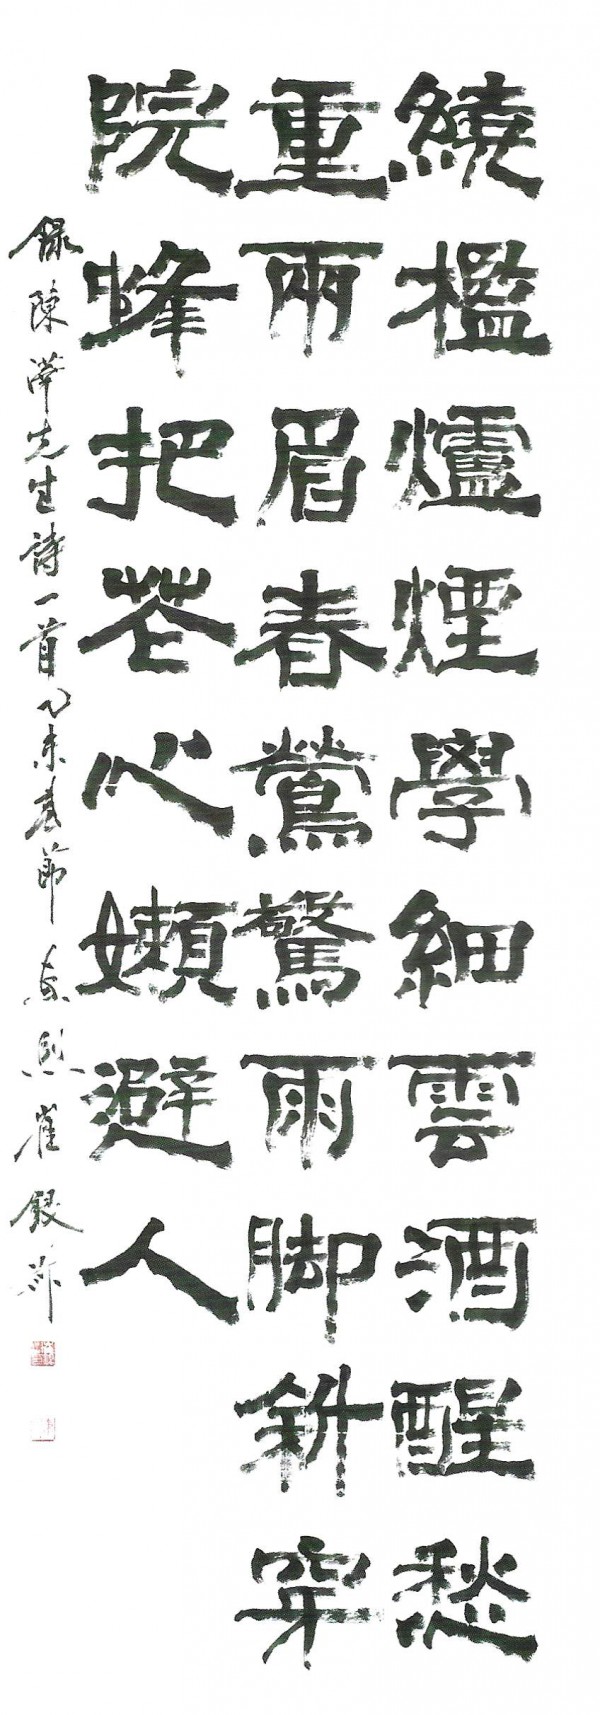 繞檻爐煙學細雲酒醒愁
重兩眉春鶯驚雨脚斜穿
院蜂把花心嬾避人
錄陳澕先生詩一首 乙未春節 崔銀